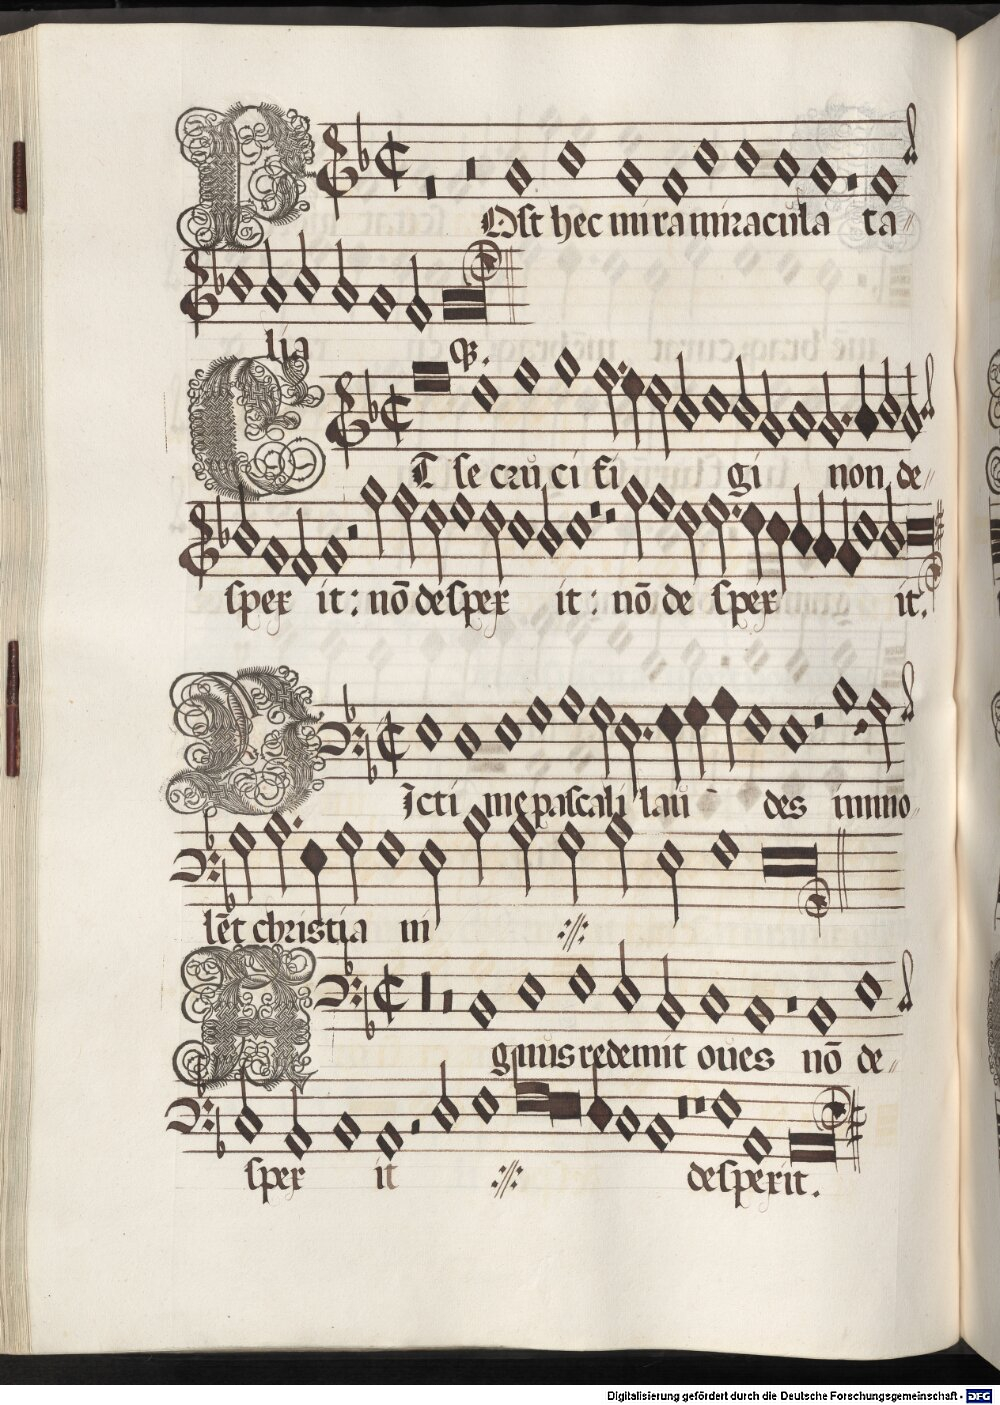 POst hec mira miracula ta-
lia
ET se crucifigi non de-
spexit: nō despexit: nō despexit.
VIctime pascali laudes immo-
lēt christiani ://:
Agnus redemit oues nō de-
spexit ://: despexit.
Digitalisierung gefördert durch die Deutsche Forschungsgemeinschaft - DFG